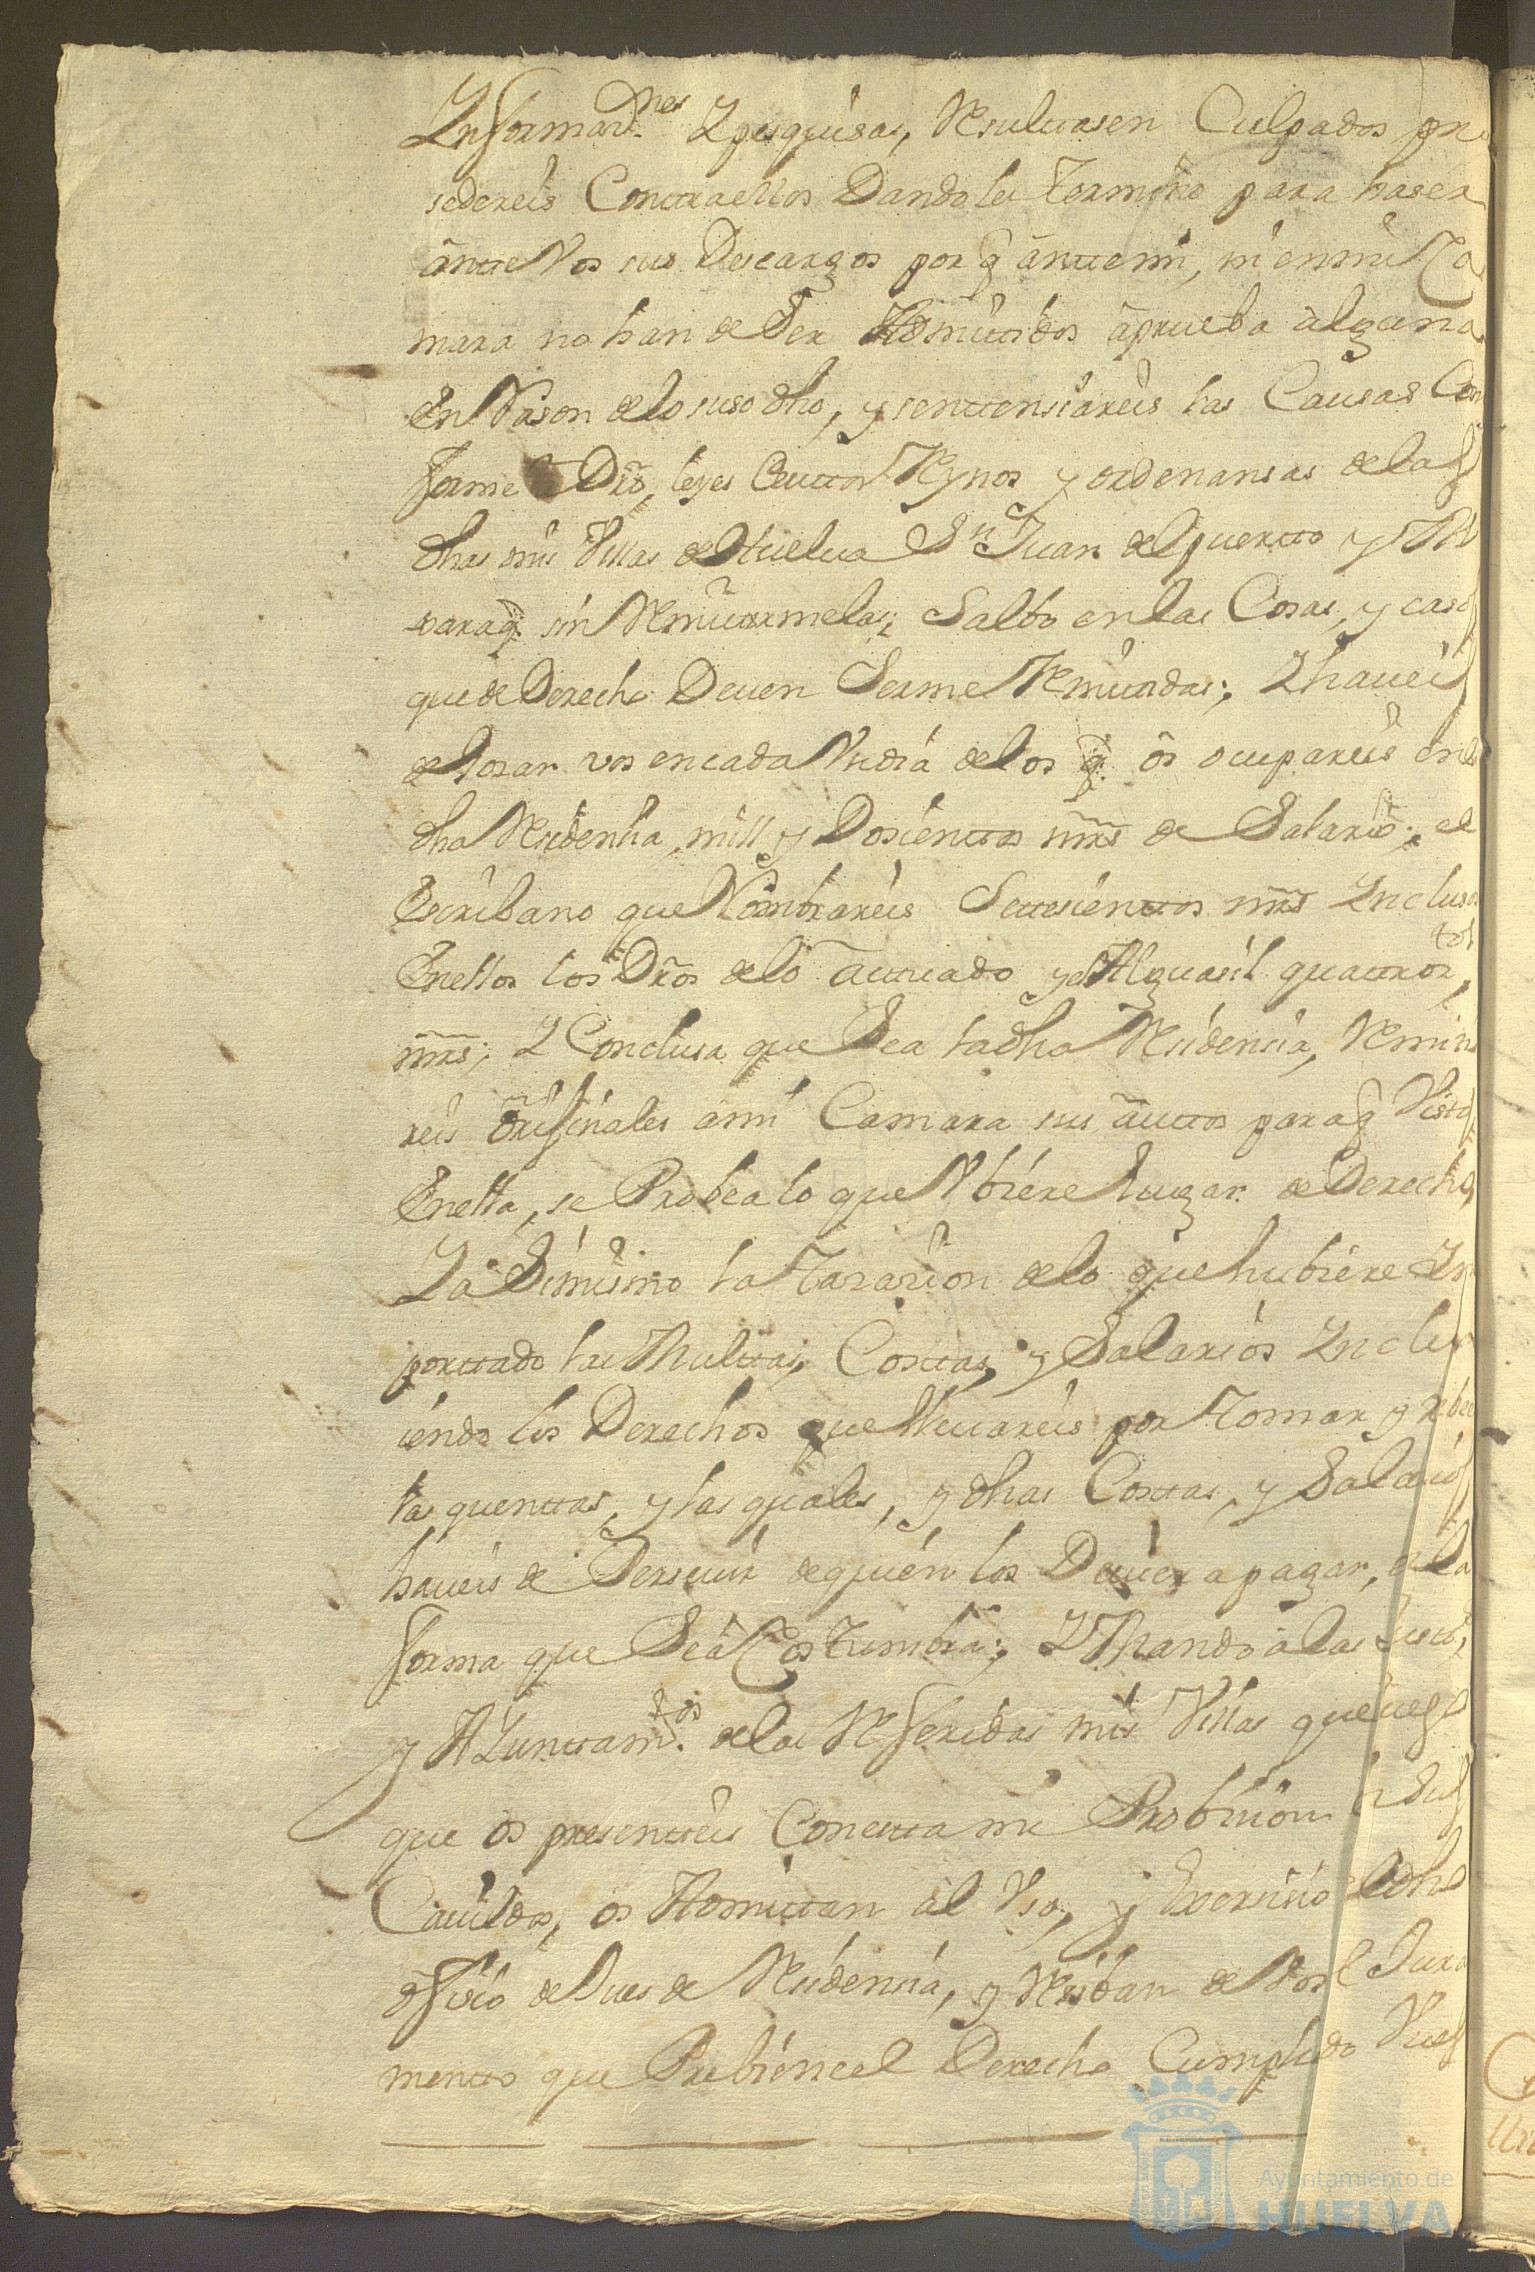 Informaz.nes Y pesquisas, Resultasen Culpados pro
sedereis Contra ellos Dandoles Termino para haser
ante Vos sus Descargos por q ante mi, ni en mi Ca
mara no han de Ser Admittidos a prueba alguna
En Rason de lo suso dho, y sentensiareis las Causas Con
forme a Dro, leyes destos Reynos y ordenansas de las
dhas mis Villas de Huelva Sn Juan del puerto y
para q sin Remitirmelas; Salbo en las Cosas, y casos
que de Derecho Deven Serme Remitidas; Y haveis
de Gosar vos en cada Un dia de los q os ocupareis en la
dha Residensia, mill y Dosientos mrs de Salario; el
Escribano que Nombrareis Settesienttos mrs Inclusos
En ellos los Dros de lo actuado y el Alguasil quattros.tos
mrs; Y Conclusa que Sea la dha Residensia, Remiti
reis Orijinales a mi Camara sus autos para q Vistos
En ella, se Probea lo que Ubiere lugar de Derecho
Y a Simismo la Tasasion de lo que hubiere Im
porttado las Multtas, Costtas, y Salarios Inclu
iendo los Derechos que llevareis por Tomar y rebeer
las quenttas, y las quales, y dhas Costtas, y Salarios
haveis de Persevir de quien los Deviere pagar, en la
forma que Sea Costumbre; Y Mando a las Just.s,
y Ayunttam.tos de las Referidas mis Villas que luego
que os presentteis Con estta mi Probision en sus
Cavildos, os Admittan al Uso, y Exersisio de dho
ofisio de Jues de Residensia, y Resiban de Vos el Jura
mentto que Prebiene el Derecho Cumplido
Ayuntamiento de
HUELVA